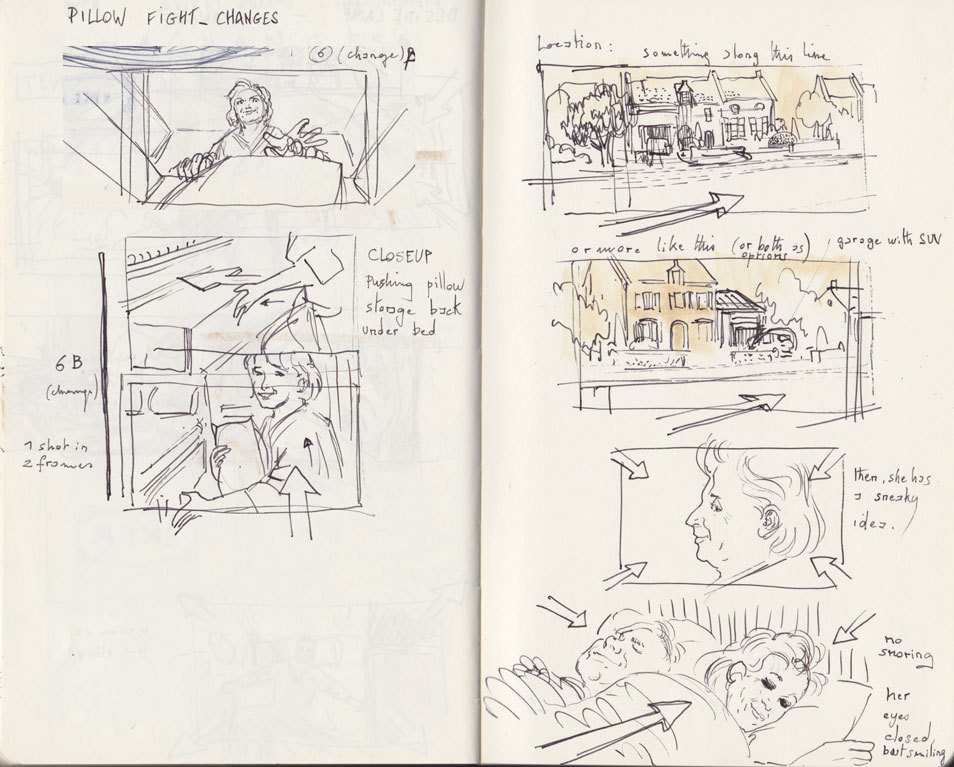 PILLOW FIGHT_CHANGES
6 (change)
CLOSEUP
Pushing pillow
storage back
under bed
6B
(change)
1 shot in
2 frames
Location:
something along this line
or more like this (or both as
options)
garage with SUV
then, she has
a sneaky
idea.
no
snoring
her
eyes
closed,
but smiling